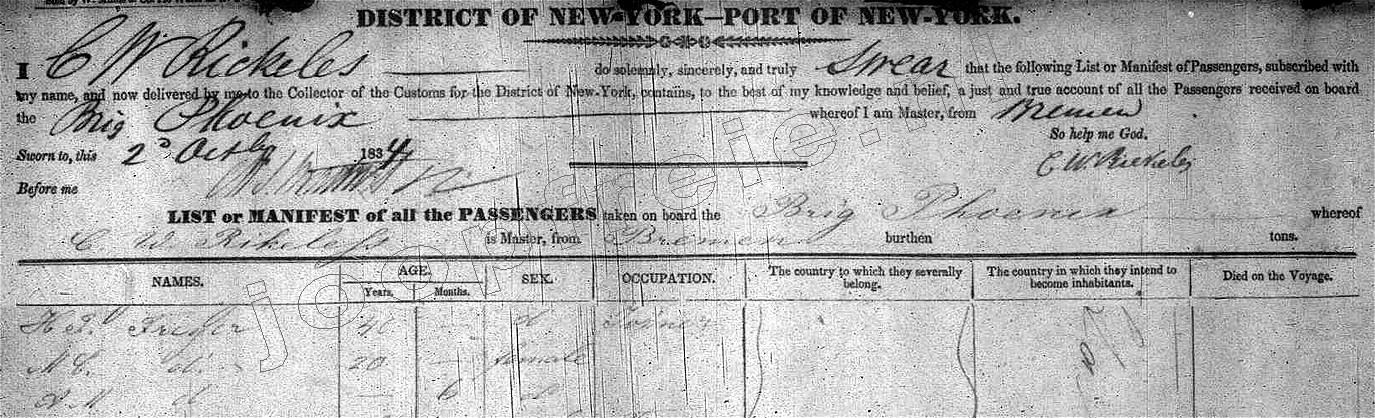 DISTRICT OF NEW-YORK—PORT OF NEW-YORK.
I C W Rickeles do solemnly, sincerely, and truly Swear that the following List or Manifest of Passengers, subscribed with
my name, and now delivered by me to the Collector of the Customs for the District of New-York, contains, to the best of my knowledge and belief, a just and true account of all the Passengers received on board
the Brig Phoenix whereof I am Master, from Bremen
So help me God.
Sworn to, this 2d Octb 1834
C. W. Rickeles
Before me
LIST or MANIFEST of all the PASSENGERS taken on board the Brig Phoenix whereof
C W Rikeless is Master, from Bremen burthen tons.
NAMES. AGE. Years. Months. SEX. OCCUPATION. The country to which they severally belong. The country in which they intend to become inhabitants. Died on the Voyage.
H. 40 — d Joiner
M. C. d 20 — female
M d — 6 d